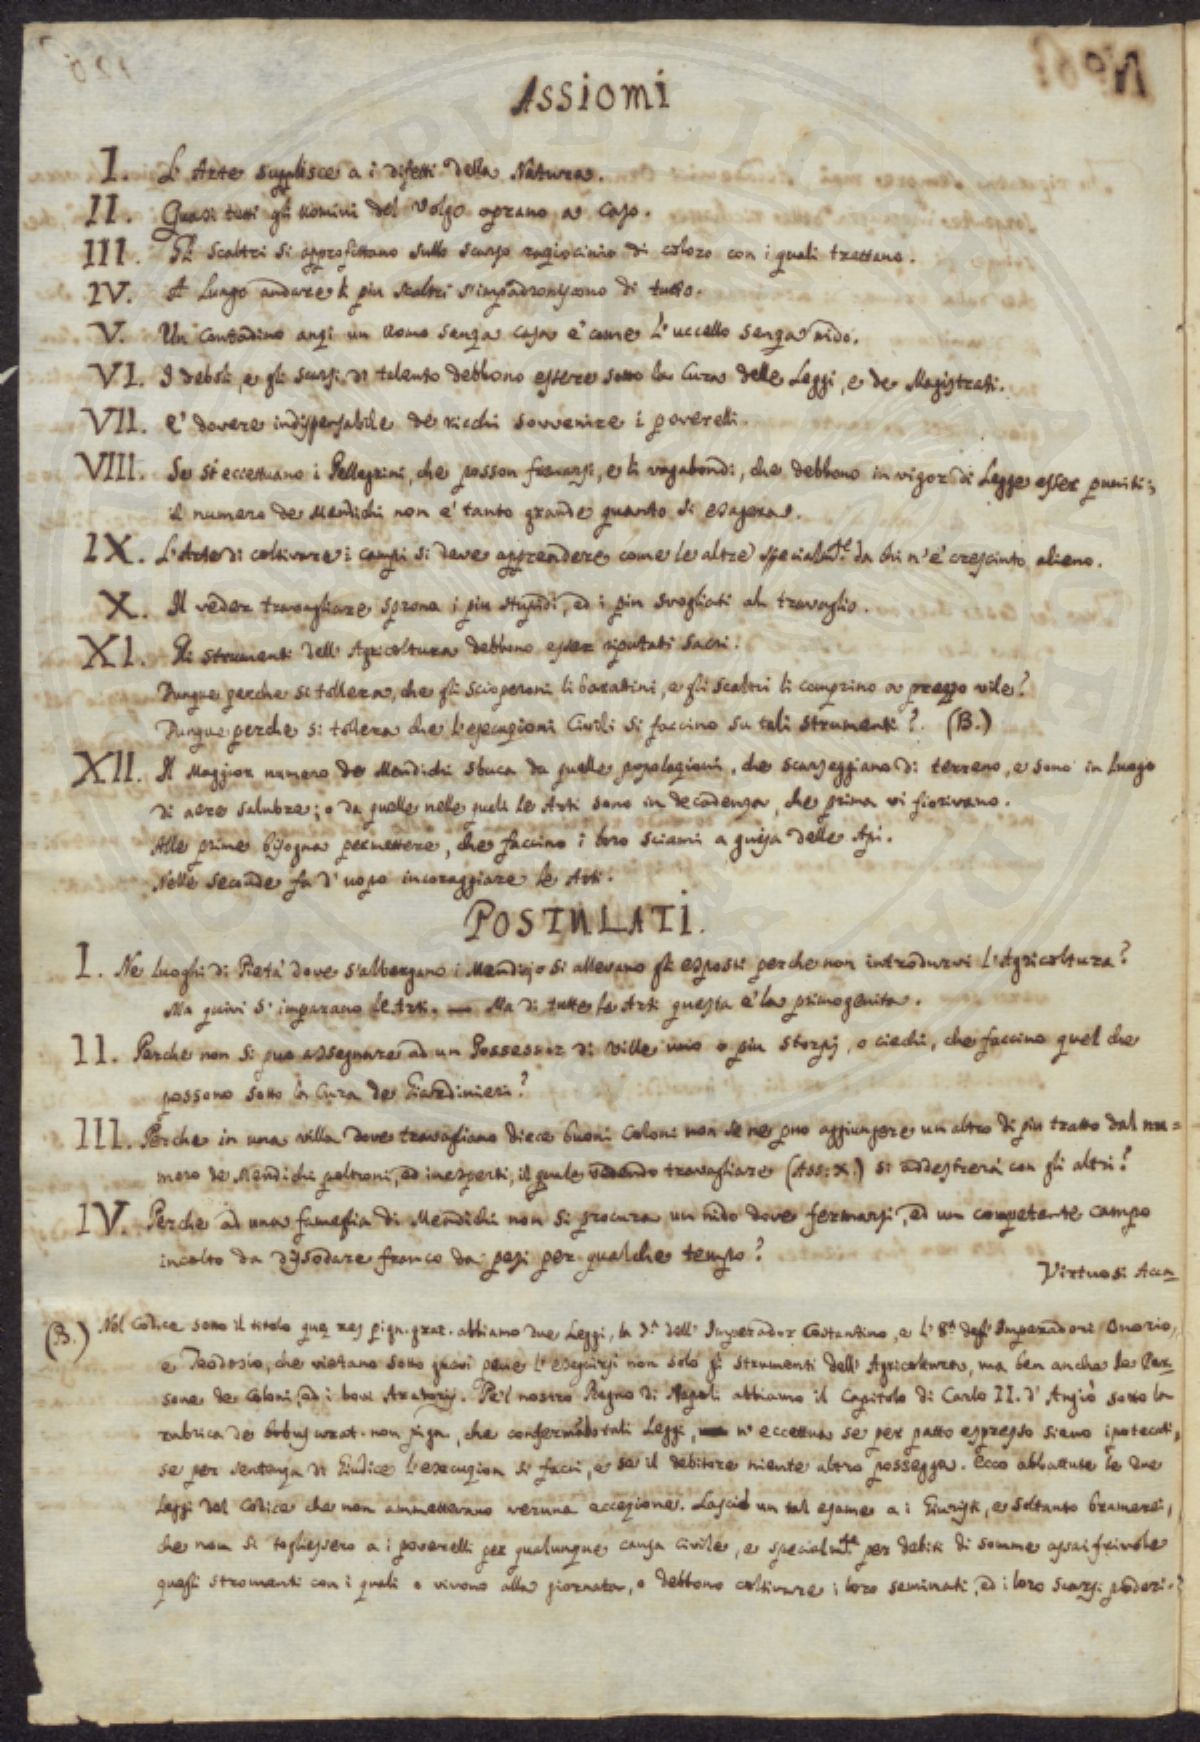 Assiomi
I. L'Arte supplisce a i difetti della Natura.
II. Quasi tutti gli uomini del Volgo oprano a caso.
III. Gli scaltri si approfittano sullo scarso raziocinio di coloro con i quali trattano.
IV. A lungo andare li più scaltri s'impadroniscono di tutto.
V. Un Contadino anzi un uomo senza casa è come l'uccello senza nido.
VI. I deboli, e gli scarsi di talento debbono essere sotto la Cura delle Leggi, e de Magistrati.
VII. E' dovere indispensabile de ricchi sovvenire i poverelli.
VIII. Se si eccettuano i Pellegrini, che posson fermarsi, e li vagabondi, che debbono in vigor di Legge esser puniti;
il numero de Mendichi non è tanto grande quanto si esagera.
IX. L'Arte di coltivare i campi si deve apprendere come le altre specialm.te da chi n'è cresciuto alieno.
X. Il veder travagliare sprona i più stupidi, ed i più svogliati al travaglio.
XI. Gli strumenti dell'Agricoltura debbono esser riputati sacri.
Dunque perche si tollera, che gli scioperoni li barattini, e gli scaltri li comprino a prezzo vile?
Dunque perche si tollera che l'esecuzioni Civili si faccino su tali strumenti? (B.)
XII. Il Maggior numero de Mendichi sbuca da quelle popolazioni, che scarseggiano di terreno, e sono in luogo
di aere salubre; o da quelle nelle quali le Arti sono in decadenza, che prima vi fiorivano.
Alle prime bisogna permettere, che faccino i loro sciami a guisa delle Api.
Nelle seconde fa d'uopo incoraggiare le Arti.
POSTULATI.
I. Ne luoghi di Pietà dove s'albergano i Mendici o si allevano gli esposti perche non introdurvi l'Agricoltura?
Ma quivi s'imparano le Arti. — Ma di tutte le Arti questa è la primogenita.
II. Perche non si può assegnare ad un Possessor di Ville uno o più storpj, o ciechi, che faccino quel che
possono sotto la Cura de Giardinieri?
III. Perche in una villa dove travagliano diece buoni Coloni non se ne può aggiungere un altro di più tratto dal nu=
mero de Mendichi poltroni, ed inesperti, il quale vedendo travagliare (Ass: X.) si addestrerà con gli altri?
IV. Perche ad una fameglia di Mendichi non si procura un nido dove fermarsi, ed un competente campo
incolto da dissodare franco da pesi per qualche tempo?
Virtuosi Acca=
(B.) Nel Codice sotto il titolo quę res pign. abbiamo due Leggi, la 7.a dell'Imperador Costantino, e l'8.a degl'Imperadori Onorio,
e Teodosio, che vietano sotto gravi pene l'eseguirsi non solo gli strumenti dell'Agricoltura, ma ben anche le Per=
sone de Coloni, ed i bovi Aratorij. Pe'l nostro Regno di Napoli abbiamo il Capitolo di Carlo II. d'Angiò sotto la
rubrica de bobus arat. non che confermando tali Leggi, n'eccettua se per patto espresso sieno ipotecati,
se per sentenza di Giudice l'esecuzion si facci, e se il debitore niente altro possegga. Ecco abbattute le due
Leggi del Codice che non ammettevano veruna eccezione. Lascio un tal esame a i Giuristi, e soltanto bramerei,
che non si togliessero a i poverelli per qualunque causa civile, e specialm.te per debiti di somme assai frivole
questi stromenti con i quali o vivono alla giornata, o debbono coltivare i loro seminati, ed i loro scarsi poderi.